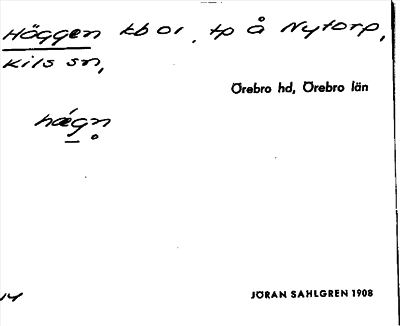 Höggen kb 01, tp å Nytorp,
Kils sn,
Örebro hd, Örebro län
hǽgn̥
JÖRAN SAHLGREN 1908